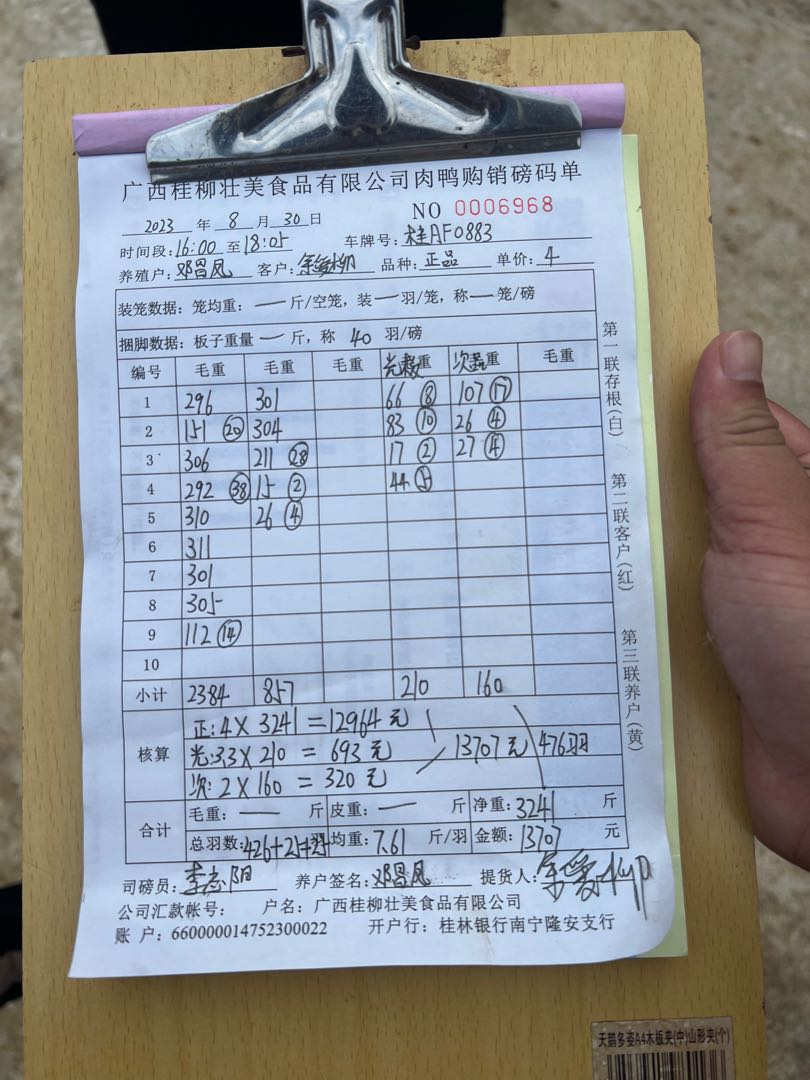 广西桂柳壮美食品有限公司肉鸭购销磅码单
2023 年 8 月 30 日 NO 0006968
时间段:16:00 至 18:05 车牌号:桂AF0883
养殖户:邓昌凤 客户: 品种:正品 单价:4
装笼数据:笼均重:— 斤/空笼,装 — 羽/笼,称 — 笼/磅
捆脚数据:板子重量 — 斤,称 40 羽/磅
编号 毛重 毛重 毛重 重 次 重 毛重
1 296 301 66 ⑧ 107 ⑰
2 151 ⑳ 304 83 ⑩ 26 ④
3 306 211 ㉘ 17 ② 27 ④
4 292 ㊳ 15 ② 44 ⑤
5 310 26 ④
6 311
7 301
8 305
9 112 ⑭
10
小计 2384 857 210 160
核算
正:4×3241=12964元
光:3.3×210=693元
次:2×160=320元
13707元 476羽
合计
毛重:— 斤 皮重:— 斤 净重:3241 斤
总羽数:426+25+25 均重:7.61 斤/羽 金额:13707 元
司磅员:李志阳 养户签名:邓昌凤 提货人:
公司汇款帐号: 户名:广西桂柳壮美食品有限公司
账 户:660000014752300022 开户行:桂林银行南宁隆安支行
第一联存根(白)
第二联客户(红)
第三联养户(黄)
天鹅多姿A4木板夹(中)山形夹(个)